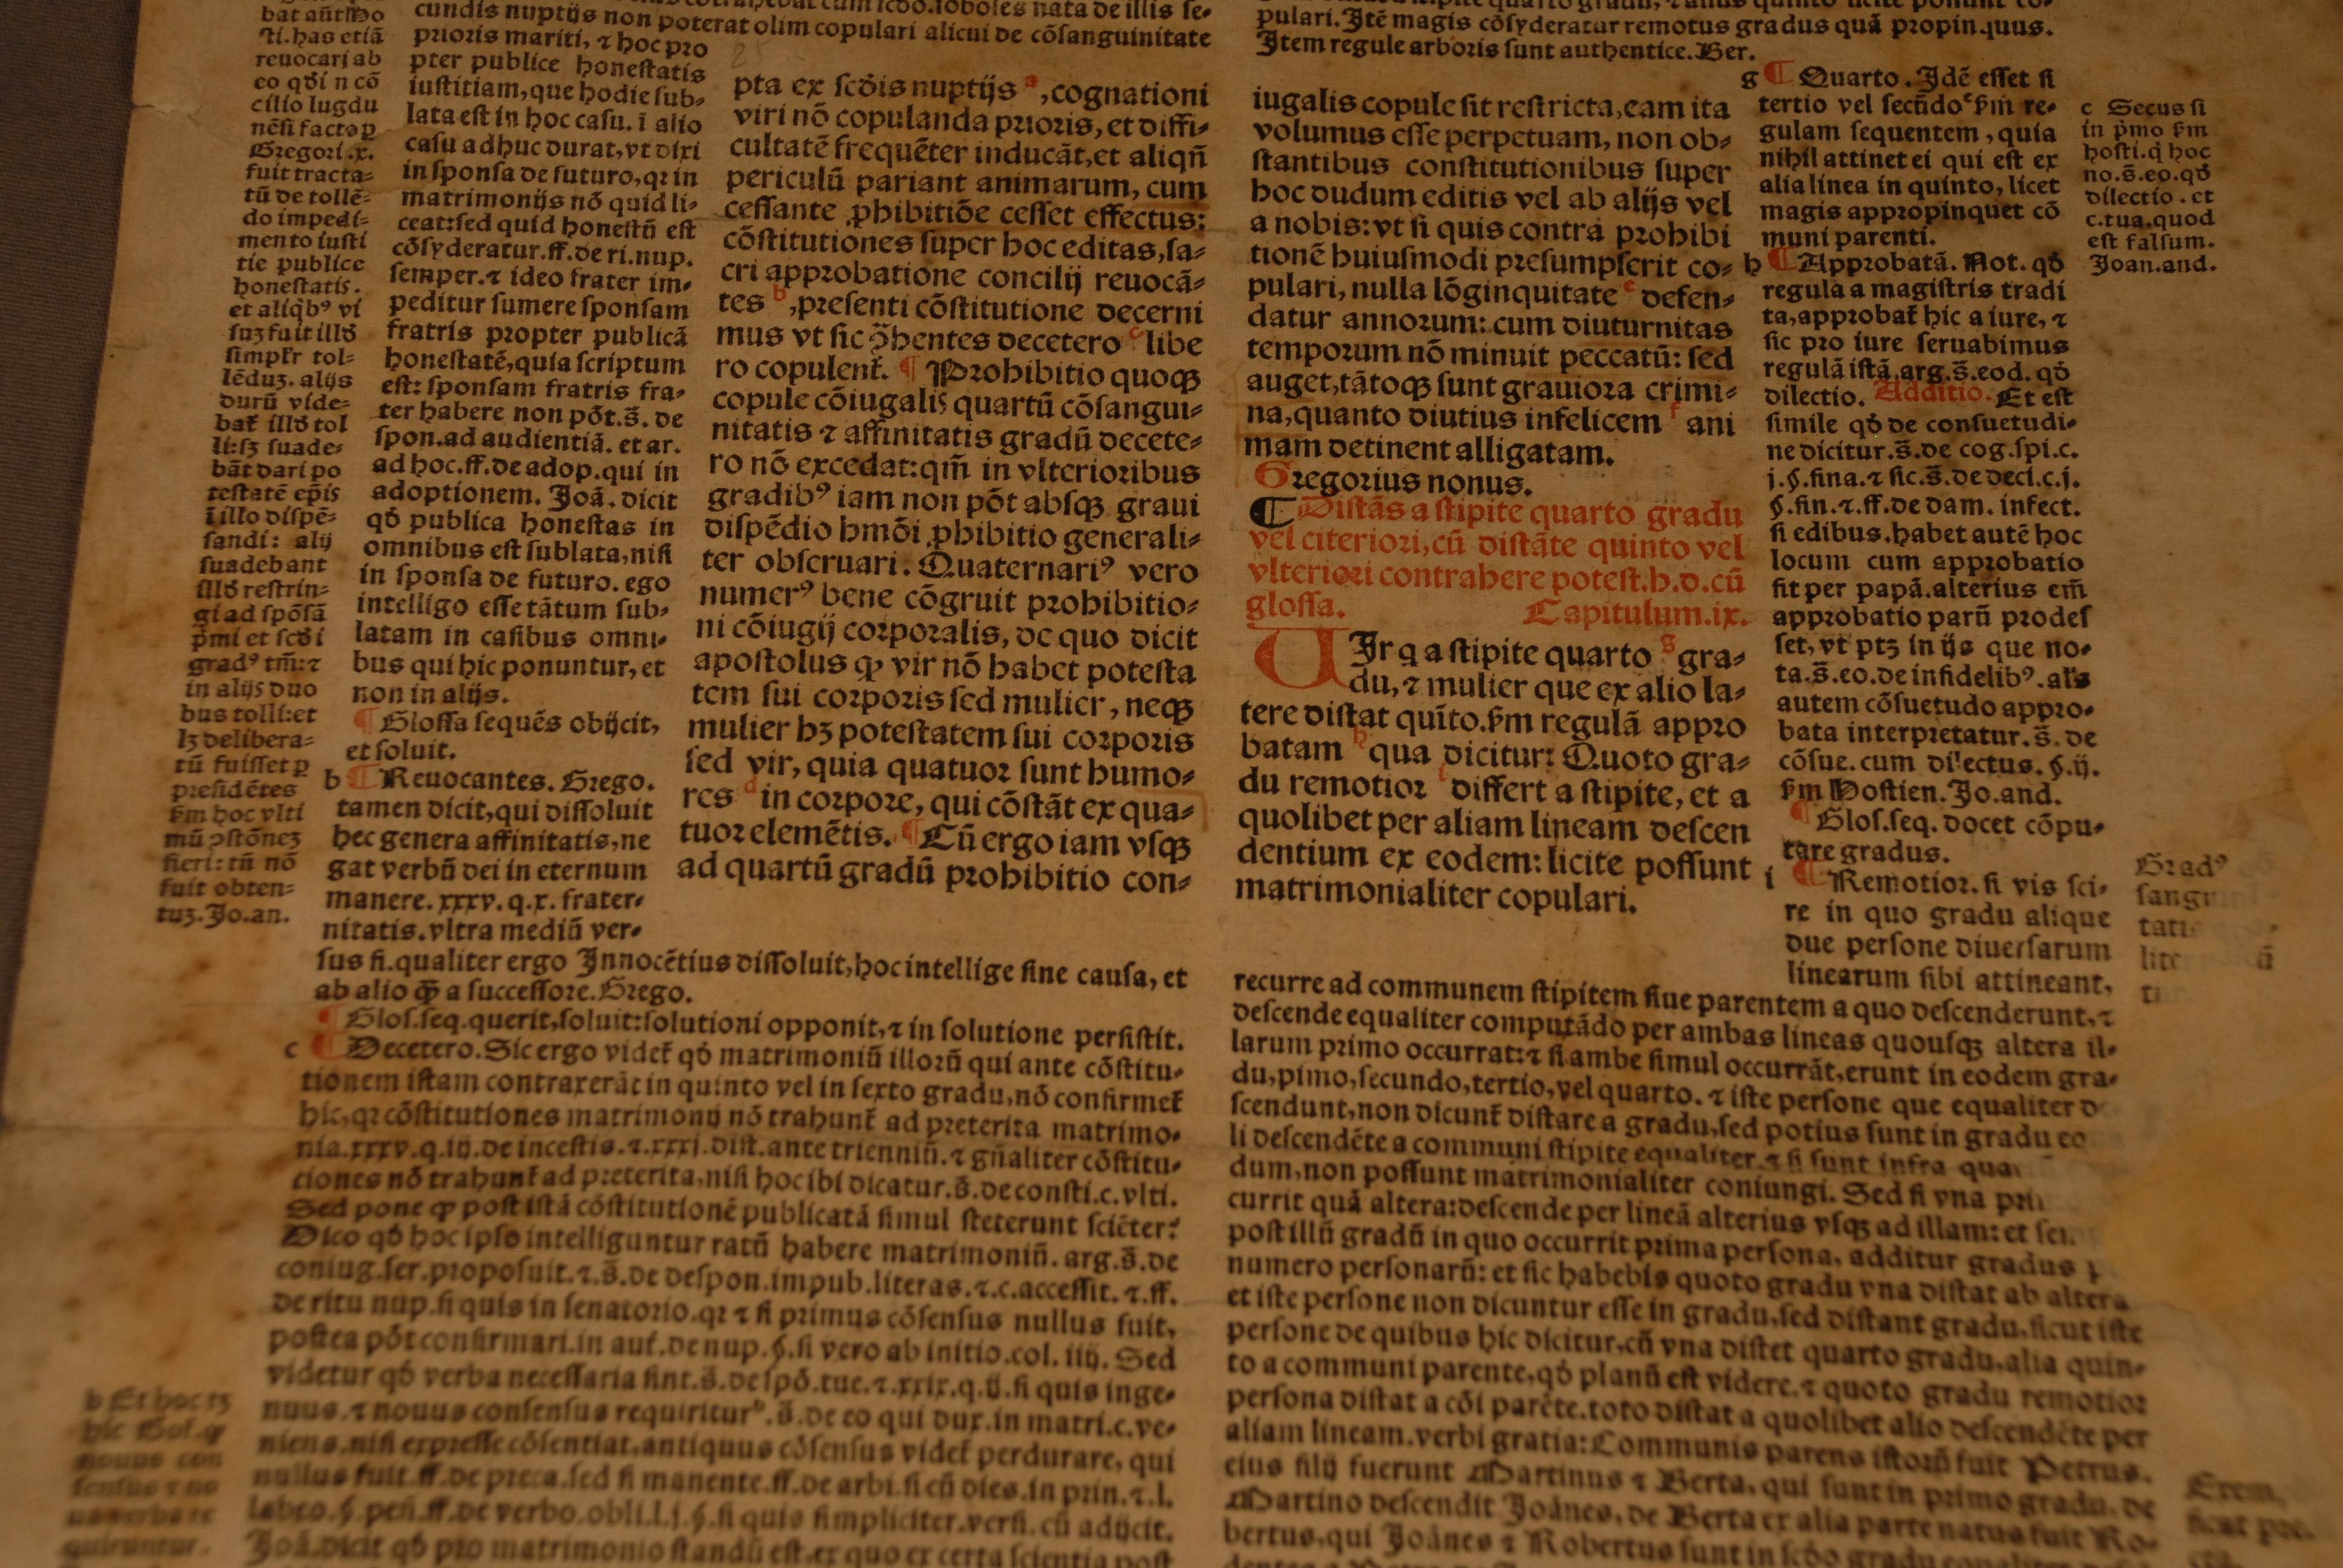 bat aūt īdo
sti. has etiā
reuocari ab
eo qđ i n cō
cilio lugdu
nēsi facto ꝑ
Gregori .x.
fuit tracta-
tū de tollē-
do impedi-
mento iusti
tie publice
honestatis.
et aliqbꝰ vi
suꝫ fuit illđ
simplr tol-
lēduꝫ. alijs
durū vide-
bat illđ tol
li:sꝫ suade-
bāt dari po
testatē epīs
ī illo dispē-
sandi: alij
suadebant
illđ restrin-
gi ad spōsā
pmi et scđi
gradꝰ tm̄:⁊
in alijs duo
bus tolli:et
lꝫ delibera-
tū fuisset ꝑ
presidētes
ẜm hoc vlti
mū ↄstōneꝫ
fieri: tn̄ nō
fuit obten-
tuꝫ. Jo. an.
cundis nuptijs non poterat olim copulari alicui de cōsanguinitate
prioris mariti, ⁊ hoc pro
pter publice honestatis
iustitiam, que hodie sub-
lata est in hoc casu. ī alio
casu adhuc durat, vt dixi
in sponsa de futuro, qꝛ in
matrimonijs nō quid li-
ceat:sed quid honestū est
cōsyderatur. ff. de ri. nup.
semper. ⁊ ideo frater im-
peditur sumere sponsam
fratris propter publicā
honestatē, quia scriptum
est: sponsam fratris fra-
ter habere non pōt. s̄. de
spon. ad audientiā. et ar.
ad hoc. ff. de adop. qui in
adoptionem. Joā. dicit
qđ publica honestas in
omnibus est sublata, nisi
in sponsa de futuro. ego
intelligo esse tātum sub-
latam in casibus omni-
bus qui hic ponuntur, et
non in alijs.
¶ Glossa sequēs obijcit,
et soluit.
b ¶ Reuocantes. Grego.
tamen dicit, qui dissoluit
hec genera affinitatis, ne
gat verbū dei in eternum
manere. xxxv. q. x. frater-
nitatis. vltra mediū ver-
sus fi. qualiter ergo Innocētius dissoluit, hoc intellige sine causa, et
ab alio q̄ꝫ a successore. Grego.
¶ Glos. seq. querit, soluit: solutioni opponit, ⁊ in solutione persistit.
c ¶ Decetero. Sic ergo videt̄ qđ matrimoniū illorū qui ante cōstitu-
tionem istam contraxerāt in quinto vel in sexto gradu, nō confirmet̄
hic, qꝛ cōstitutiones matrimonij nō trahunt̄ ad preterita matrimo-
nia. xxxv. q. iij. de incestis. ⁊. xxxj. dist. ante trienniū. ⁊ gn̄aliter cōstitu-
tiones nō trahunt̄ ad preterita, nisi hoc ibi dicatur. s̄. de consti. c. vlti.
Sed pone ꝙ post istā cōstitutionē publicatā simul steterunt sciēter?
Dico qđ hoc ipso intelliguntur ratū habere matrimoniū. arg. s̄. de
coniug. ser. proposuit. ⁊. s̄. de despon. impub. literas. ⁊. c. accessit. ⁊. ff.
de ritu nup. si quis in senatorio. qꝛ ⁊ si primus cōsensus nullus fuit,
postea pōt confirmari. in aut. de nup. §. si vero ab initio. col. iiij. Sed
videtur qđ verba necessaria sint. s̄. de spō. tue. ⁊. xxix. q. ij. si quis inge-
nuus. ⁊ nouus consensus requiritur b. s̄. de eo qui dux. in matri. c. ve-
niens. nisi expresse cōsentiat. antiquus cōsensus videt̄ perdurare, qui
nullus fuit. ff. de preca. sed si manente. ff. de arbi. si cū dies. in prin. ⁊. l.
labeo. §. pen̄. ff. de verbo. obli. l. j. §. si quis simpliciter. versi. cū adijcit.
Joā. dicit qđ pro matrimonio standū est. ex quo ex certa scientia post
b Et hoc tꝫ
hic Gof. ꝙ
nouus con
sensus ⁊ no
ua verba re
quiruntur.
pta ex scđis nuptijs a, cognationi
viri nō copulanda prioris, et diffi-
cultatē frequēter inducāt, et aliqn̄
periculū pariant animarum, cum
cessante ꝓhibitiōe cesset effectus:
cōstitutiones super hoc editas, sa-
cri approbatione concilij reuocā-
tes b, presenti cōstitutione decerni
mus vt sic ↄ̨hentes decetero c libe
ro copulent̄. ¶ Prohibitio quoqꝫ
copule cōiugalis quartū cōsangui-
nitatis ⁊ affinitatis gradū decete-
ro nō excedat: qm̄ in vlterioribus
gradibꝰ iam non pōt absqꝫ graui
dispēdio hmōi ꝓhibitio generali-
ter obseruari. Quaternariꝰ vero
numerꝰ bene cōgruit prohibitio-
ni cōiugij corporalis, de quo dicit
apostolus ꝙ vir nō habet potesta
tem sui corporis sed mulier, neqꝫ
mulier hꝫ potestatem sui corporis
sed vir, quia quatuor sunt humo-
res d in corpore, qui cōstāt ex qua-
tuor elemētis. ¶ Cū ergo iam vsqꝫ
ad quartū gradū prohibitio con-
pulari. Itē magis cōsyderatur remotus gradus quā propinquus.
Item regule arboris sunt authentice. Ber.
iugalis copule sit restricta, eam ita
volumus esse perpetuam, non ob-
stantibus constitutionibus super
hoc dudum editis vel ab alijs vel
a nobis: vt si quis contra prohibi
tionē huiusmodi presumpserit co-
pulari, nulla lōginquitate e defen-
datur annorum: cum diuturnitas
temporum nō minuit peccatū: sed
auget, tātoqꝫ sunt grauiora crimi-
na, quanto diutius infelicem f ani
mam detinent alligatam.
Gregorius nonus.
¶ Distās a stipite quarto gradu
vel citeriori, cū distāte quinto vel
vlteriori contrahere potest. h. d. cū
glossa. Capitulum. ix.
UIr q a stipite quarto g gra-
du, ⁊ mulier que ex alio la-
tere distat quīto. ẜm regulā appro
batam h qua dicitur: Quoto gra-
du remotior i differt a stipite, et a
quolibet per aliam lineam descen
dentium ex eodem: licite possunt
matrimonialiter copulari.
g ¶ Quarto. Idē esset si
tertio vel secūdo c ẜm re-
gulam sequentem, quia
nihil attinet ei qui est ex
alia linea in quinto, licet
magis appropinquet cō
muni parenti.
h ¶ Approbatā. Not. qđ
regula a magistris tradi
ta, approbat̄ hic a iure, ⁊
sic pro iure seruabimus
regulā istā. arg. s̄. eod. qđ
dilectio. Additio. Et est
simile qđ de consuetudi-
ne dicitur. s̄. de cog. spi. c.
j. §. fina. ⁊ sic. s̄. de deci. c. j.
§. fin. ⁊. ff. de dam. infect.
si edibus. habet autē hoc
locum cum approbatio
fit per papā. alterius em̄
approbatio parū prodes
set, vt ptꝫ in ijs que no-
ta. s̄. eo. de infidelibꝰ. als̄
autem cōsuetudo appro-
bata interpretatur. s̄. de
cōsue. cum dilectus. §. ij.
ẜm Hostien. Jo. and.
¶ Glos. seq. docet cōpu-
tare gradus.
i ¶ Remotior. si vis sci-
re in quo gradu alique
due persone diuersarum
linearum sibi attineant,
recurre ad communem stipitem siue parentem a quo descenderunt, ⁊
descende equaliter computādo per ambas lineas quousqꝫ altera il-
larum primo occurrat: ⁊ si ambe simul occurrāt, erunt in eodem gra-
du, pimo, secundo, tertio, vel quarto. ⁊ iste persone que equaliter de
scendunt, non dicunt̄ distare a gradu, sed potius sunt in gradu eo
li descendēte a communi stipite equaliter. ⁊ si sunt infra
dum, non possunt matrimonialiter coniungi. Sed si vna
currit quā altera: descende per lineā alterius vsqꝫ ad illam: et
post illū gradū in quo occurrit prima persona, additur gradus
numero personarū: et sic habebis quoto gradu vna distat ab altera
et iste persone non dicuntur esse in gradu, sed distant gradu. sicut iste
persone de quibus hic dicitur, cū vna distet quarto gradu. alia quin-
to a communi parente, qđ planū est videre. ⁊ quoto gradu remotior
persona distat a cōi parēte. toto distat a quolibet alio descendēte per
aliam lineam. verbi gratia: Communis parens istorū fuit Petrus.
eius filij fuerunt Martinus ⁊ Berta, qui sunt in primo gradu. de
Martino descendit Joānes, de Berta ex alia parte natus fuit Ro-
bertus, qui Joānes ⁊ Robertus sunt in scđo gradu
c Secus si
in pmo ẜm
hosti. q hoc
no. s̄. eo. qđ
dilectio. et
c. tua. quod
est falsum.
Joan. and.
Gradꝰ